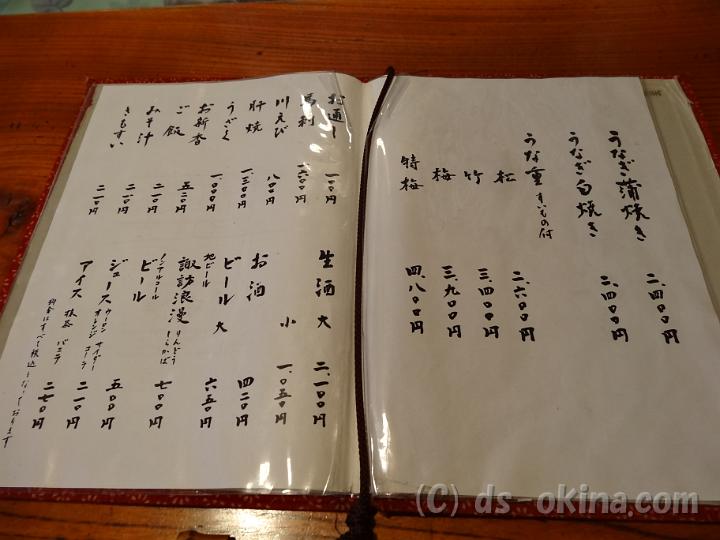 うなぎ蒲焼き 二、四〇〇円
うなぎ白焼き 二、四〇〇円
うな重 すいもの付
松 二、六〇〇円
竹 三、四〇〇円
梅 三、九〇〇円
特梅 四、八〇〇円
お通し 一〇〇円
馬刺 一、六〇〇円
川えび 八〇〇円
肝焼 一、三〇〇円
うざく 一、〇〇〇円
お新香 五二〇円
ご飯 二一〇円
みそ汁 二一〇円
きもすい 二一〇円
生酒 大 二、一〇〇円
小 一、〇五〇円
お酒 四二〇円
ビール 大 六五〇円
地ビール
諏訪浪漫 りんどう しらかば 七〇〇円
ノンアルコール
ビール 五〇〇円
ジュース ウーロン オレンジ サイダー コーラ 二一〇円
アイス 抹茶 バニラ 二七〇円
料金はすべて税込となっております
(C) ds okina.com